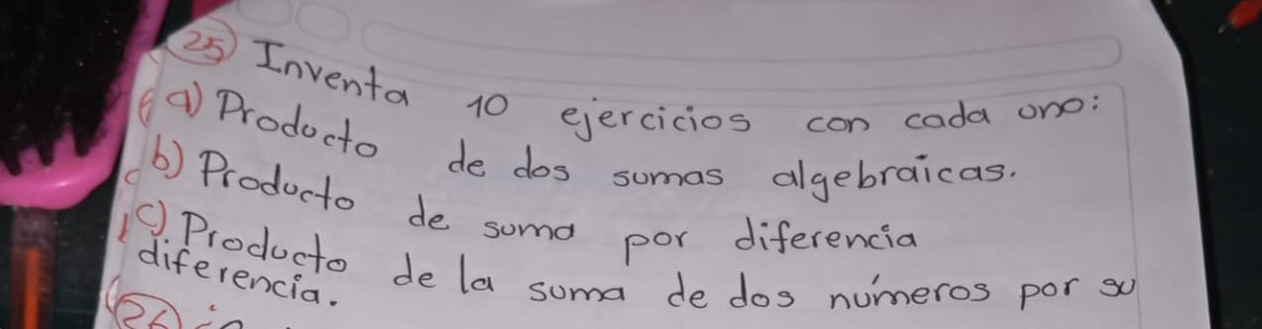 25 Inventa 10 ejercicios con cada uno:
a) Producto de dos sumas algebraicas.
b) Producto de suma por diferencia
c) Producto de la suma de dos números por su
diferencia.
26